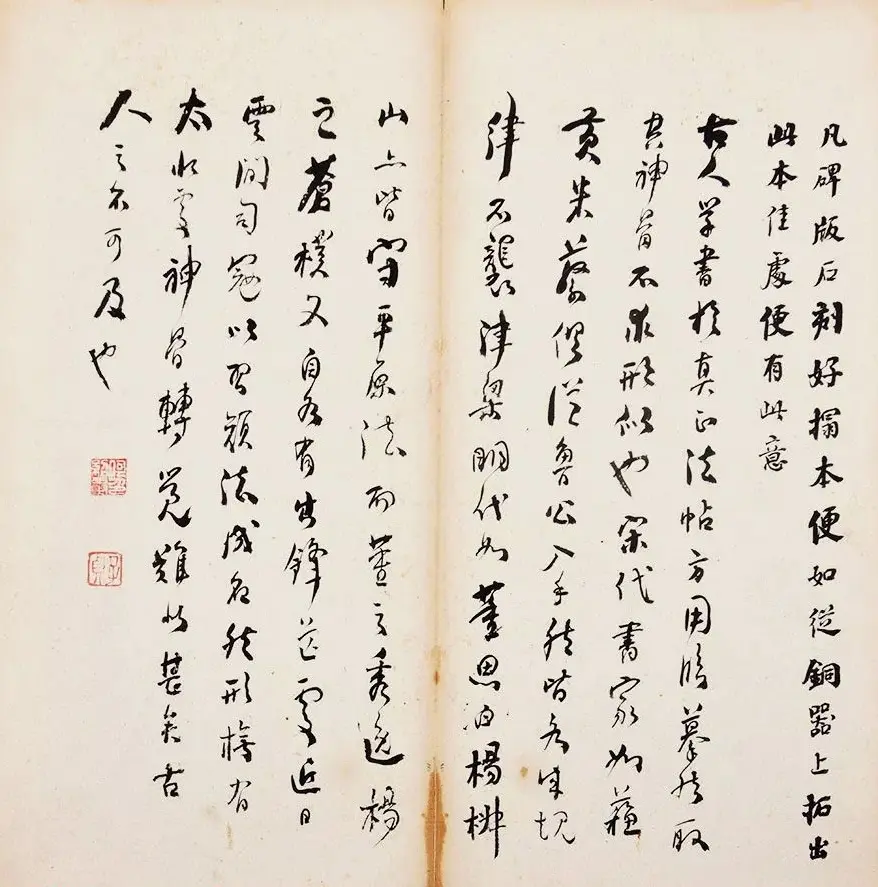 凡碑版石刻好搨本便如從銅器上拓出
此本佳處便有此意
古人学書於真正法帖方用臨摹然取
其神骨不求形似也宋代書家如蘇
黄米蔡俱從魯公入手然皆各成規
律不襲津梁明代如董思白楊椒
山亦皆守平原法而董之秀逸楊
之蒼樸又自各有出鋒芒處近日
雲間司寇以習顔法成名然形模有
太似處神骨轉覺難似甚矣古
人之不可及也
何紹基印
子貞